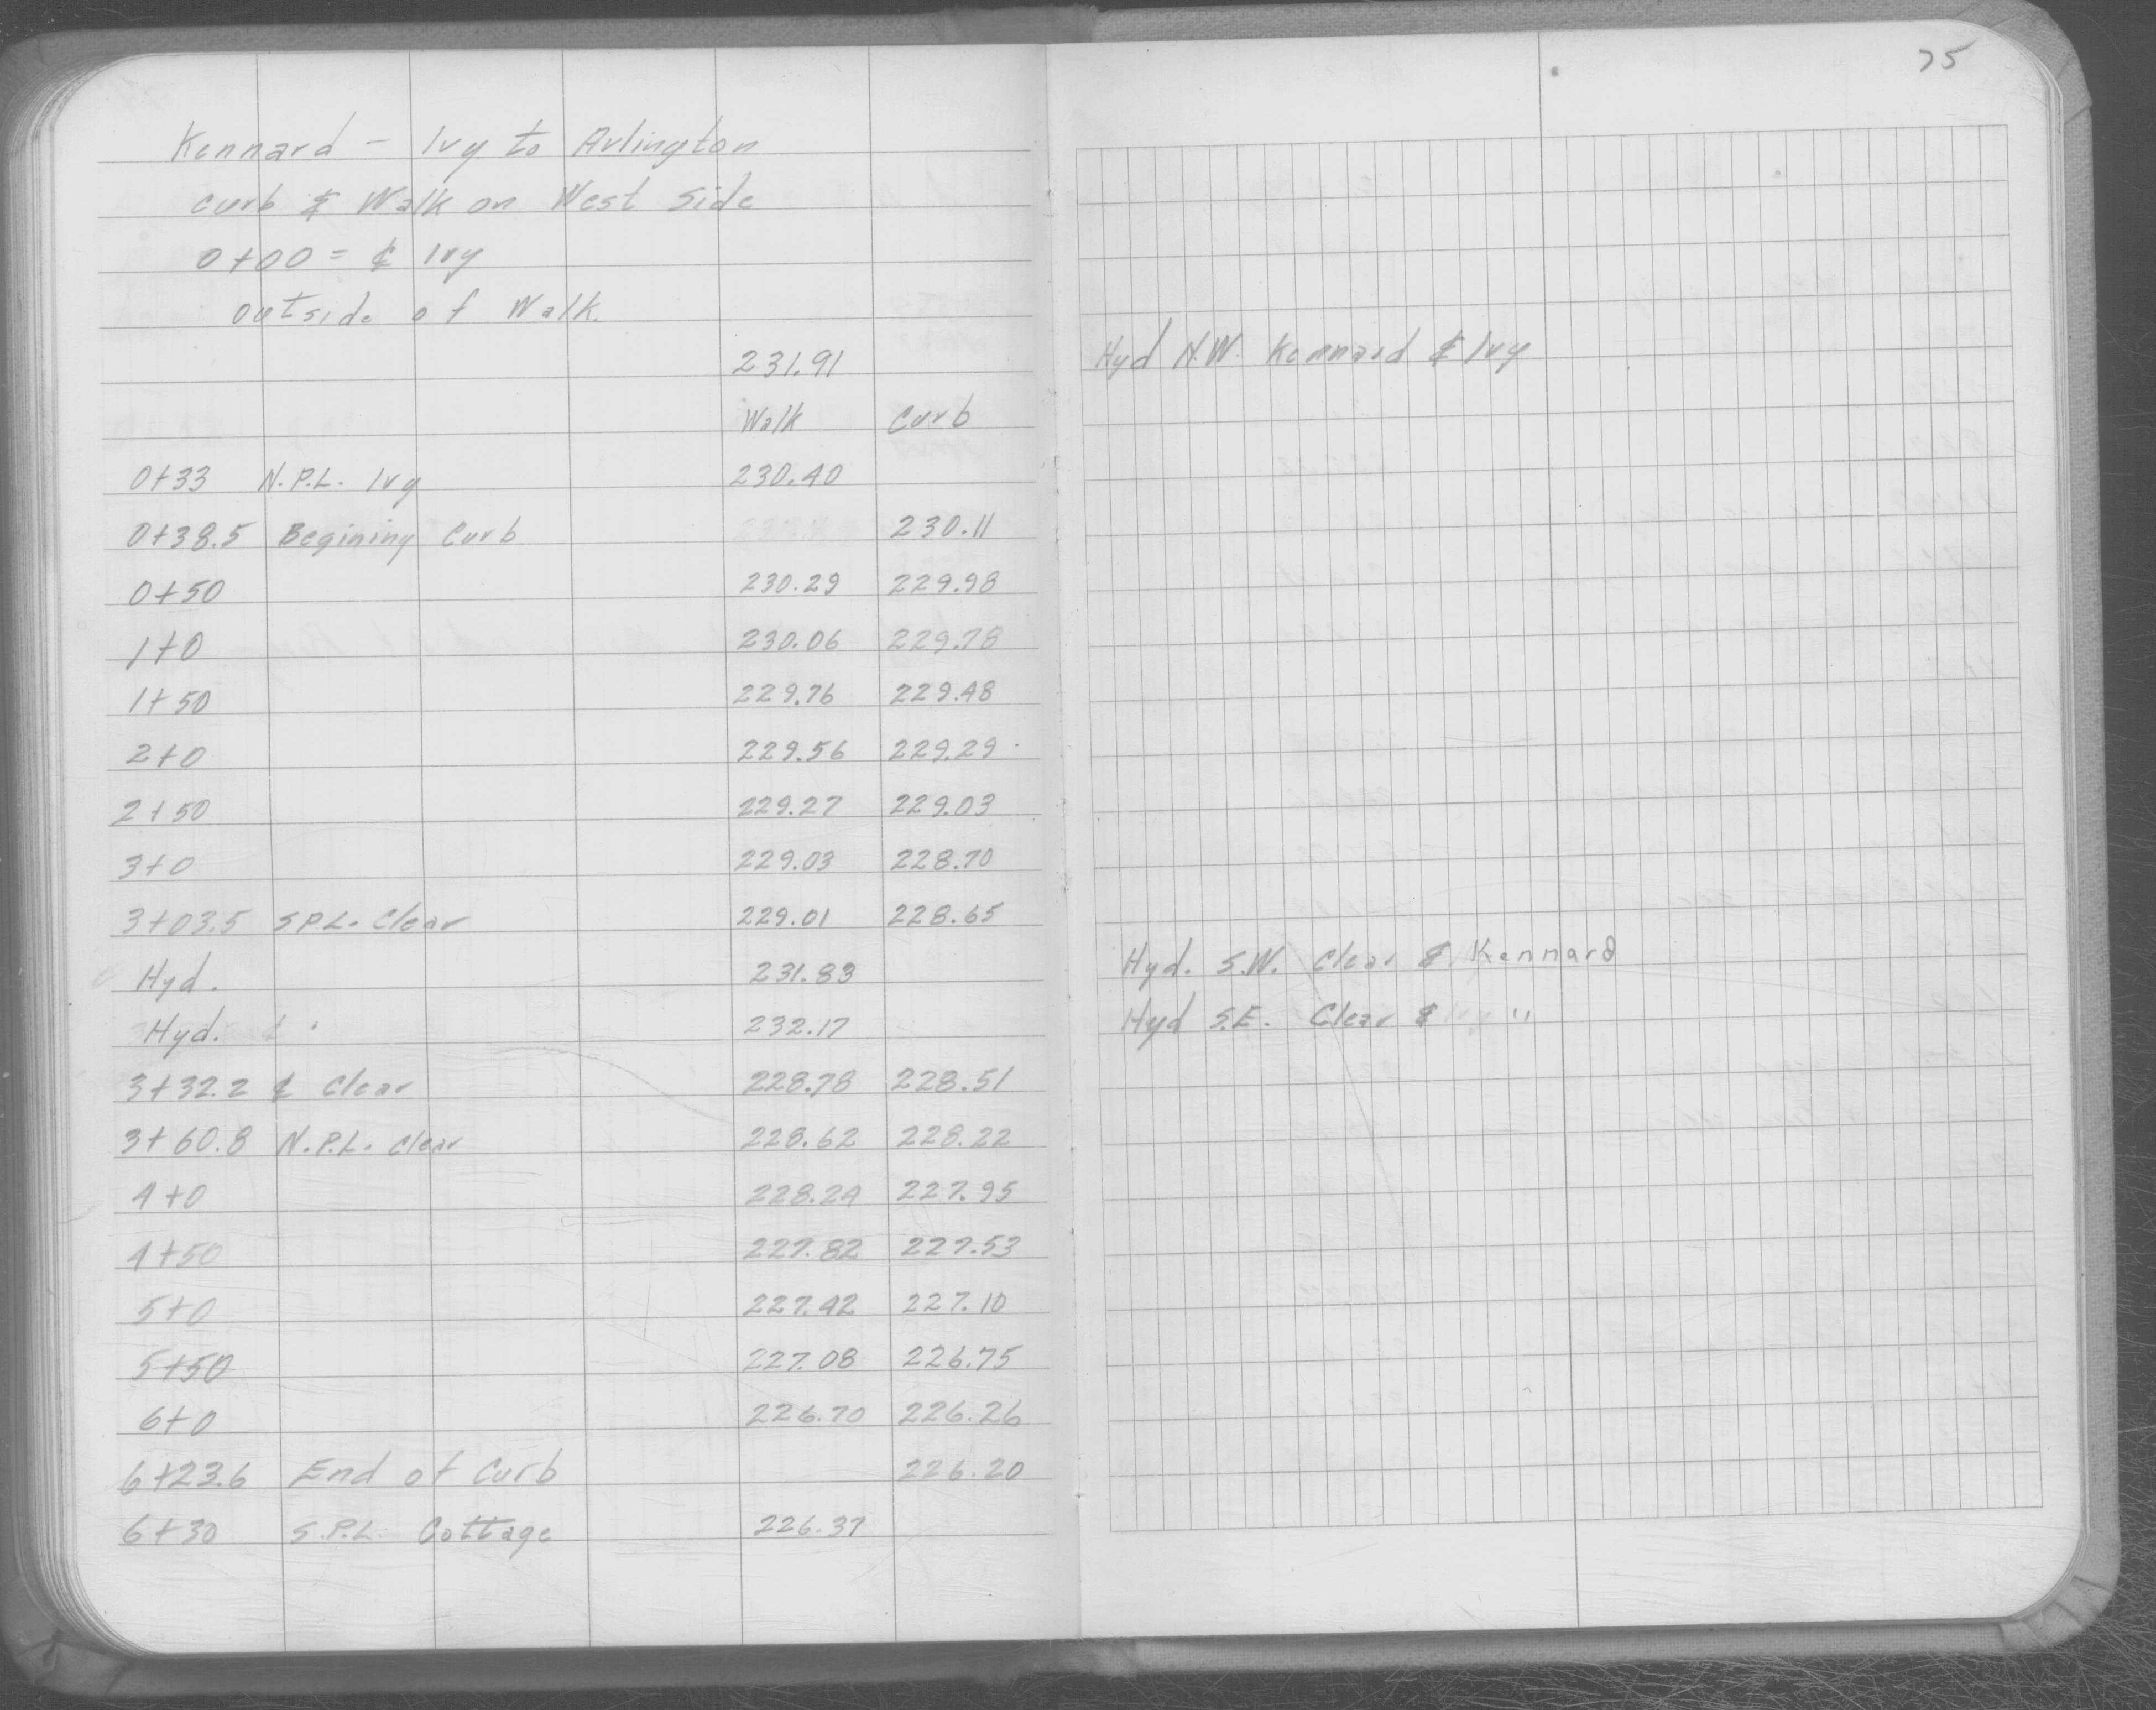 75
Kennard - Ivy to Arlington
curb & Walk on West side
0+00 = ℄ Ivy
outside of Walk.
231.91 Hyd N.W. Kennard & Ivy
Walk Curb
0+33 N.P.L. Ivy 230.40
0+38.5 Begining Curb 230.11
0+50 230.29 229.98
1+0 230.06 229.78
1+50 229.76 229.48
2+0 229.56 229.29
2+50 229.27 229.03
3+0 229.03 228.70
3+03.5 S.P.L. Clear 229.01 228.65
Hyd. 231.83 Hyd. S.W. Clear & Kennard
Hyd. 232.17 Hyd S.E. Clear & "
3+32.2 ℄ Clear 228.78 228.51
3+60.8 N.P.L. Clear 228.62 228.22
4+0 228.24 227.95
4+50 227.82 227.53
5+0 227.42 227.10
5+50 227.08 226.75
6+0 226.70 226.26
6+23.6 End of Curb 226.20
6+30 S.P.L. Cottage 226.37